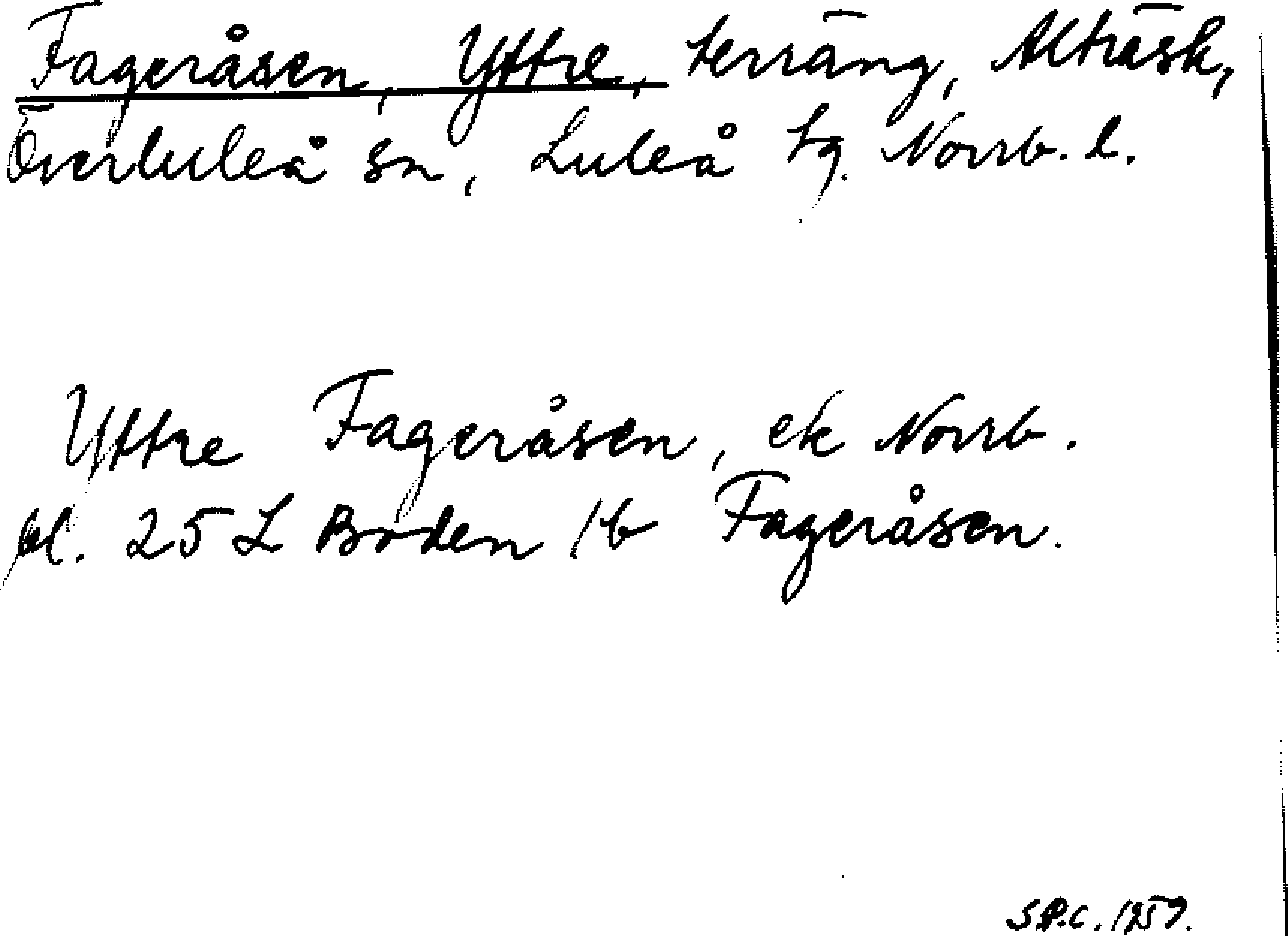 Fageråsen, Yttre, terräng, Alträsk,
Överluleå sn, Luleå tg. Norrb. l.
Yttre Fageråsen, ek Norrb.
bl. 25 L Boden /b Fageråsen.
S.P.C. 1959.